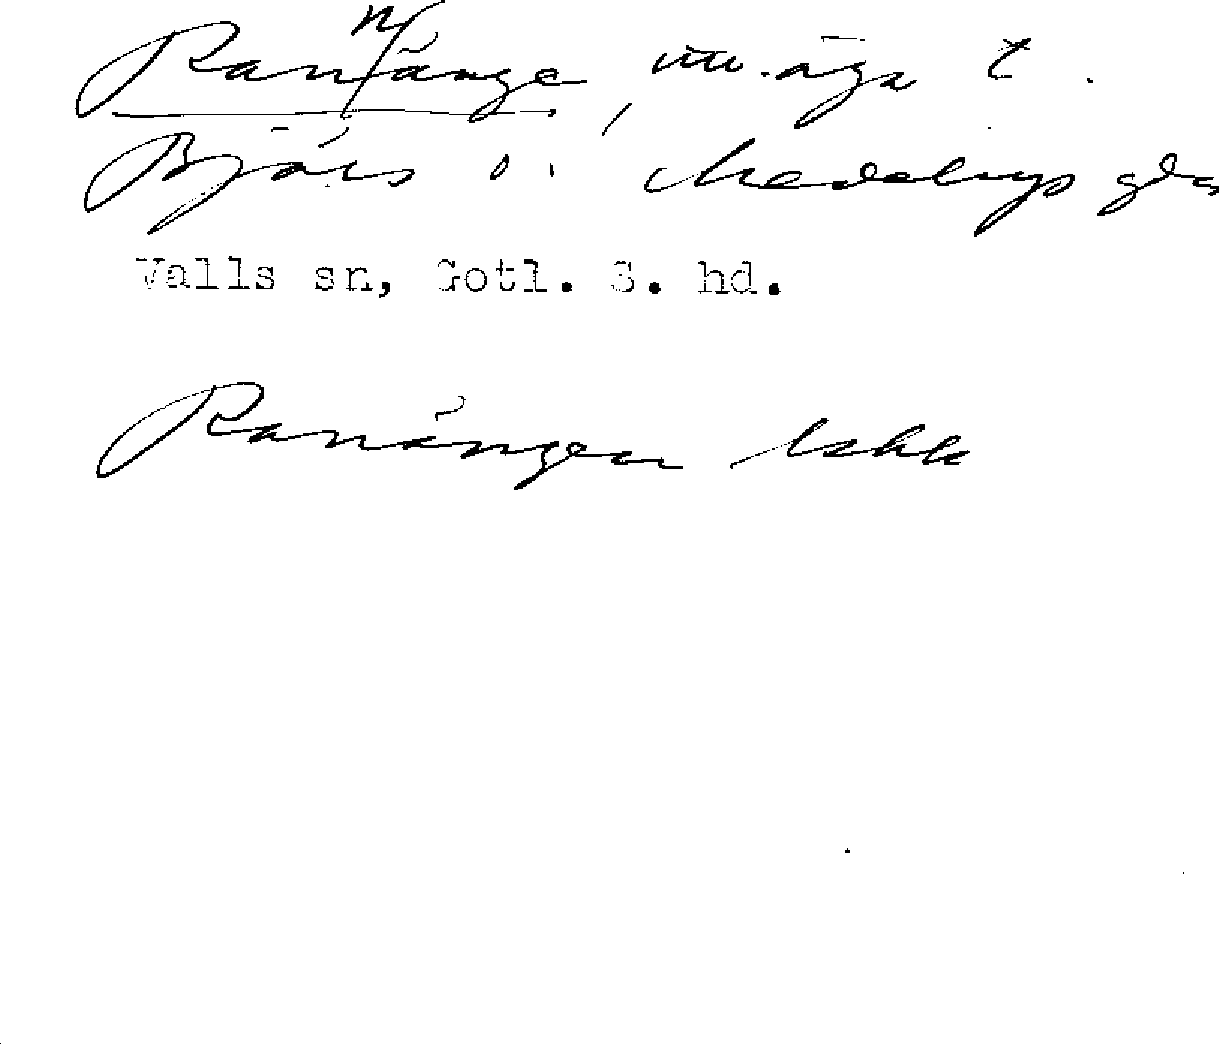 Rannänge, utv. äga t.
Bjärs o. Medebys gda
Valls sn, Gotl. S. hd.
Ranängen